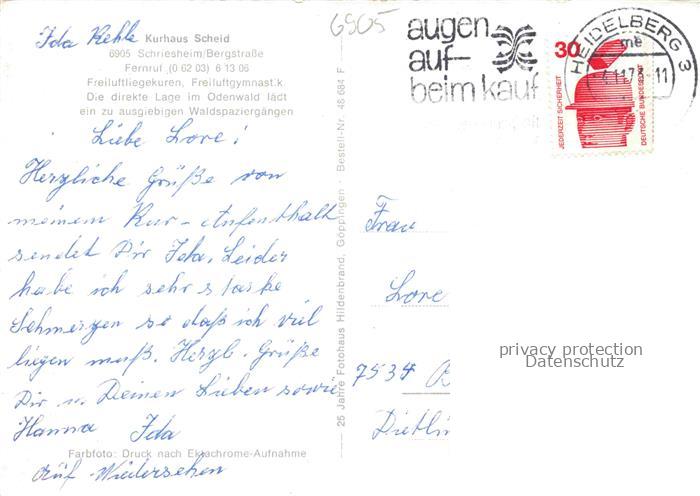 Ida Kehle
Kurhaus Scheid
6905 Schriesheim/Bergstraße
Fernruf (0 62 03) 6 13 06
Freiluftliegekuren, Freiluftgymnastik
Die direkte Lage im Odenwald lädt
ein zu ausgiebigen Waldspaziergängen
Liebe Lore!
Herzliche Grüße von
meinem Kur-Aufenthalt
sendet Dir Ida. Leider
habe ich sehr starke
Schmerzen so daß ich viel
liegen muß. Herzl. Grüße
Dir u. Deinen Lieben sowie
Hanna Ida
Farbfoto: Druck nach Ektachrome-Aufnahme
Auf Wiedersehen
25 Jahre Fotohaus Hildenbrand, Göppingen - Bestell-Nr. 48 684 F
6905
augen
auf-
beim kauf
HEIDELBERG 3
me
11
30
JEDERZEIT SICHERHEIT
DEUTSCHE BUNDESPOST
Frau
Lore
7534
Dietlin
privacy protection
Datenschutz